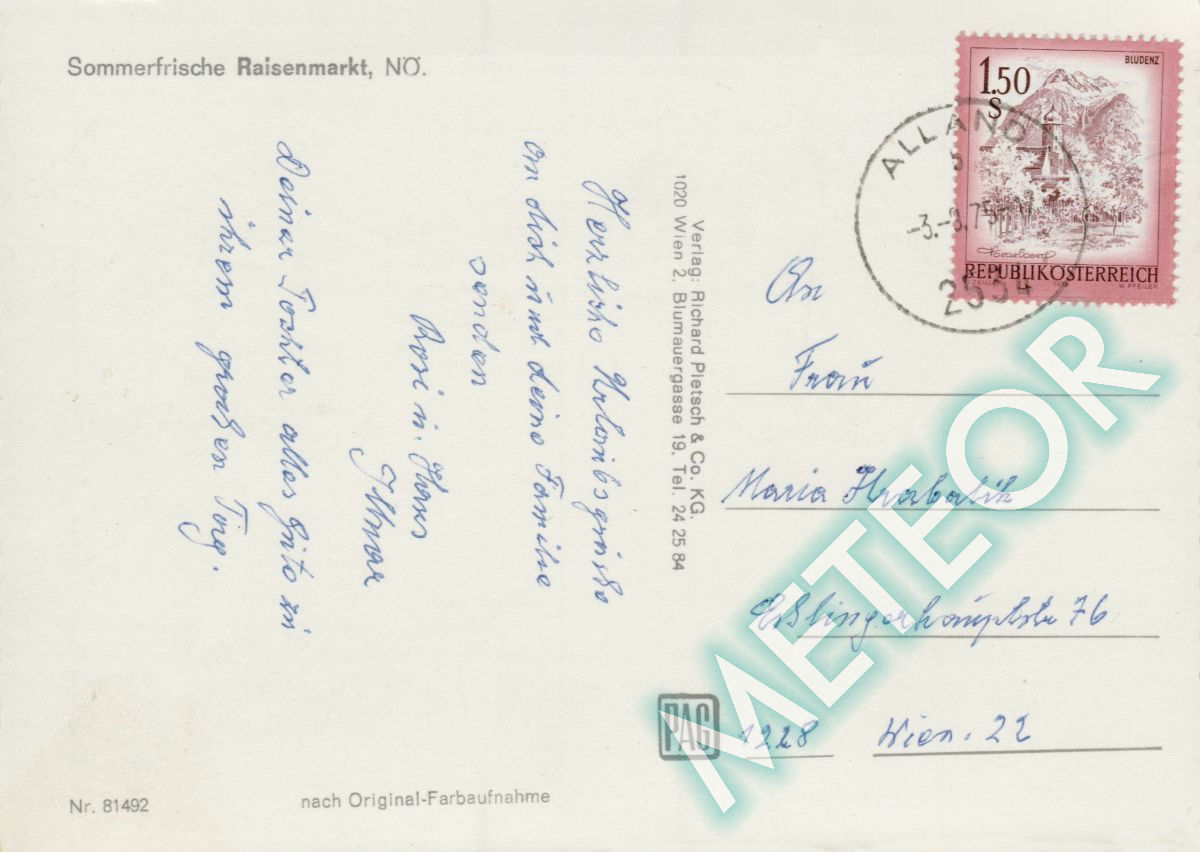 Sommerfrische Raisenmarkt, NÖ.
BLUDENZ
1.50
S
Vorarlberg
REPUBLIK ÖSTERREICH
W. PFEILER
ALLAND
2534
Herzliche Urlaubsgrüße
an dich und deine Familie
senden
Rosi u. Hans
Deiner Tochter alles gute zu
ihrem großen Tag.
Verlag: Richard Pietsch & Co. KG.
1020 Wien 2, Blumauergasse 19, Tel. 24 25 84
An
Frau
Maria Hrabalik
Eßlingerhauptstr 76
1228 Wien. 22
PAG
METEOR
Nr. 81492
nach Original-Farbaufnahme